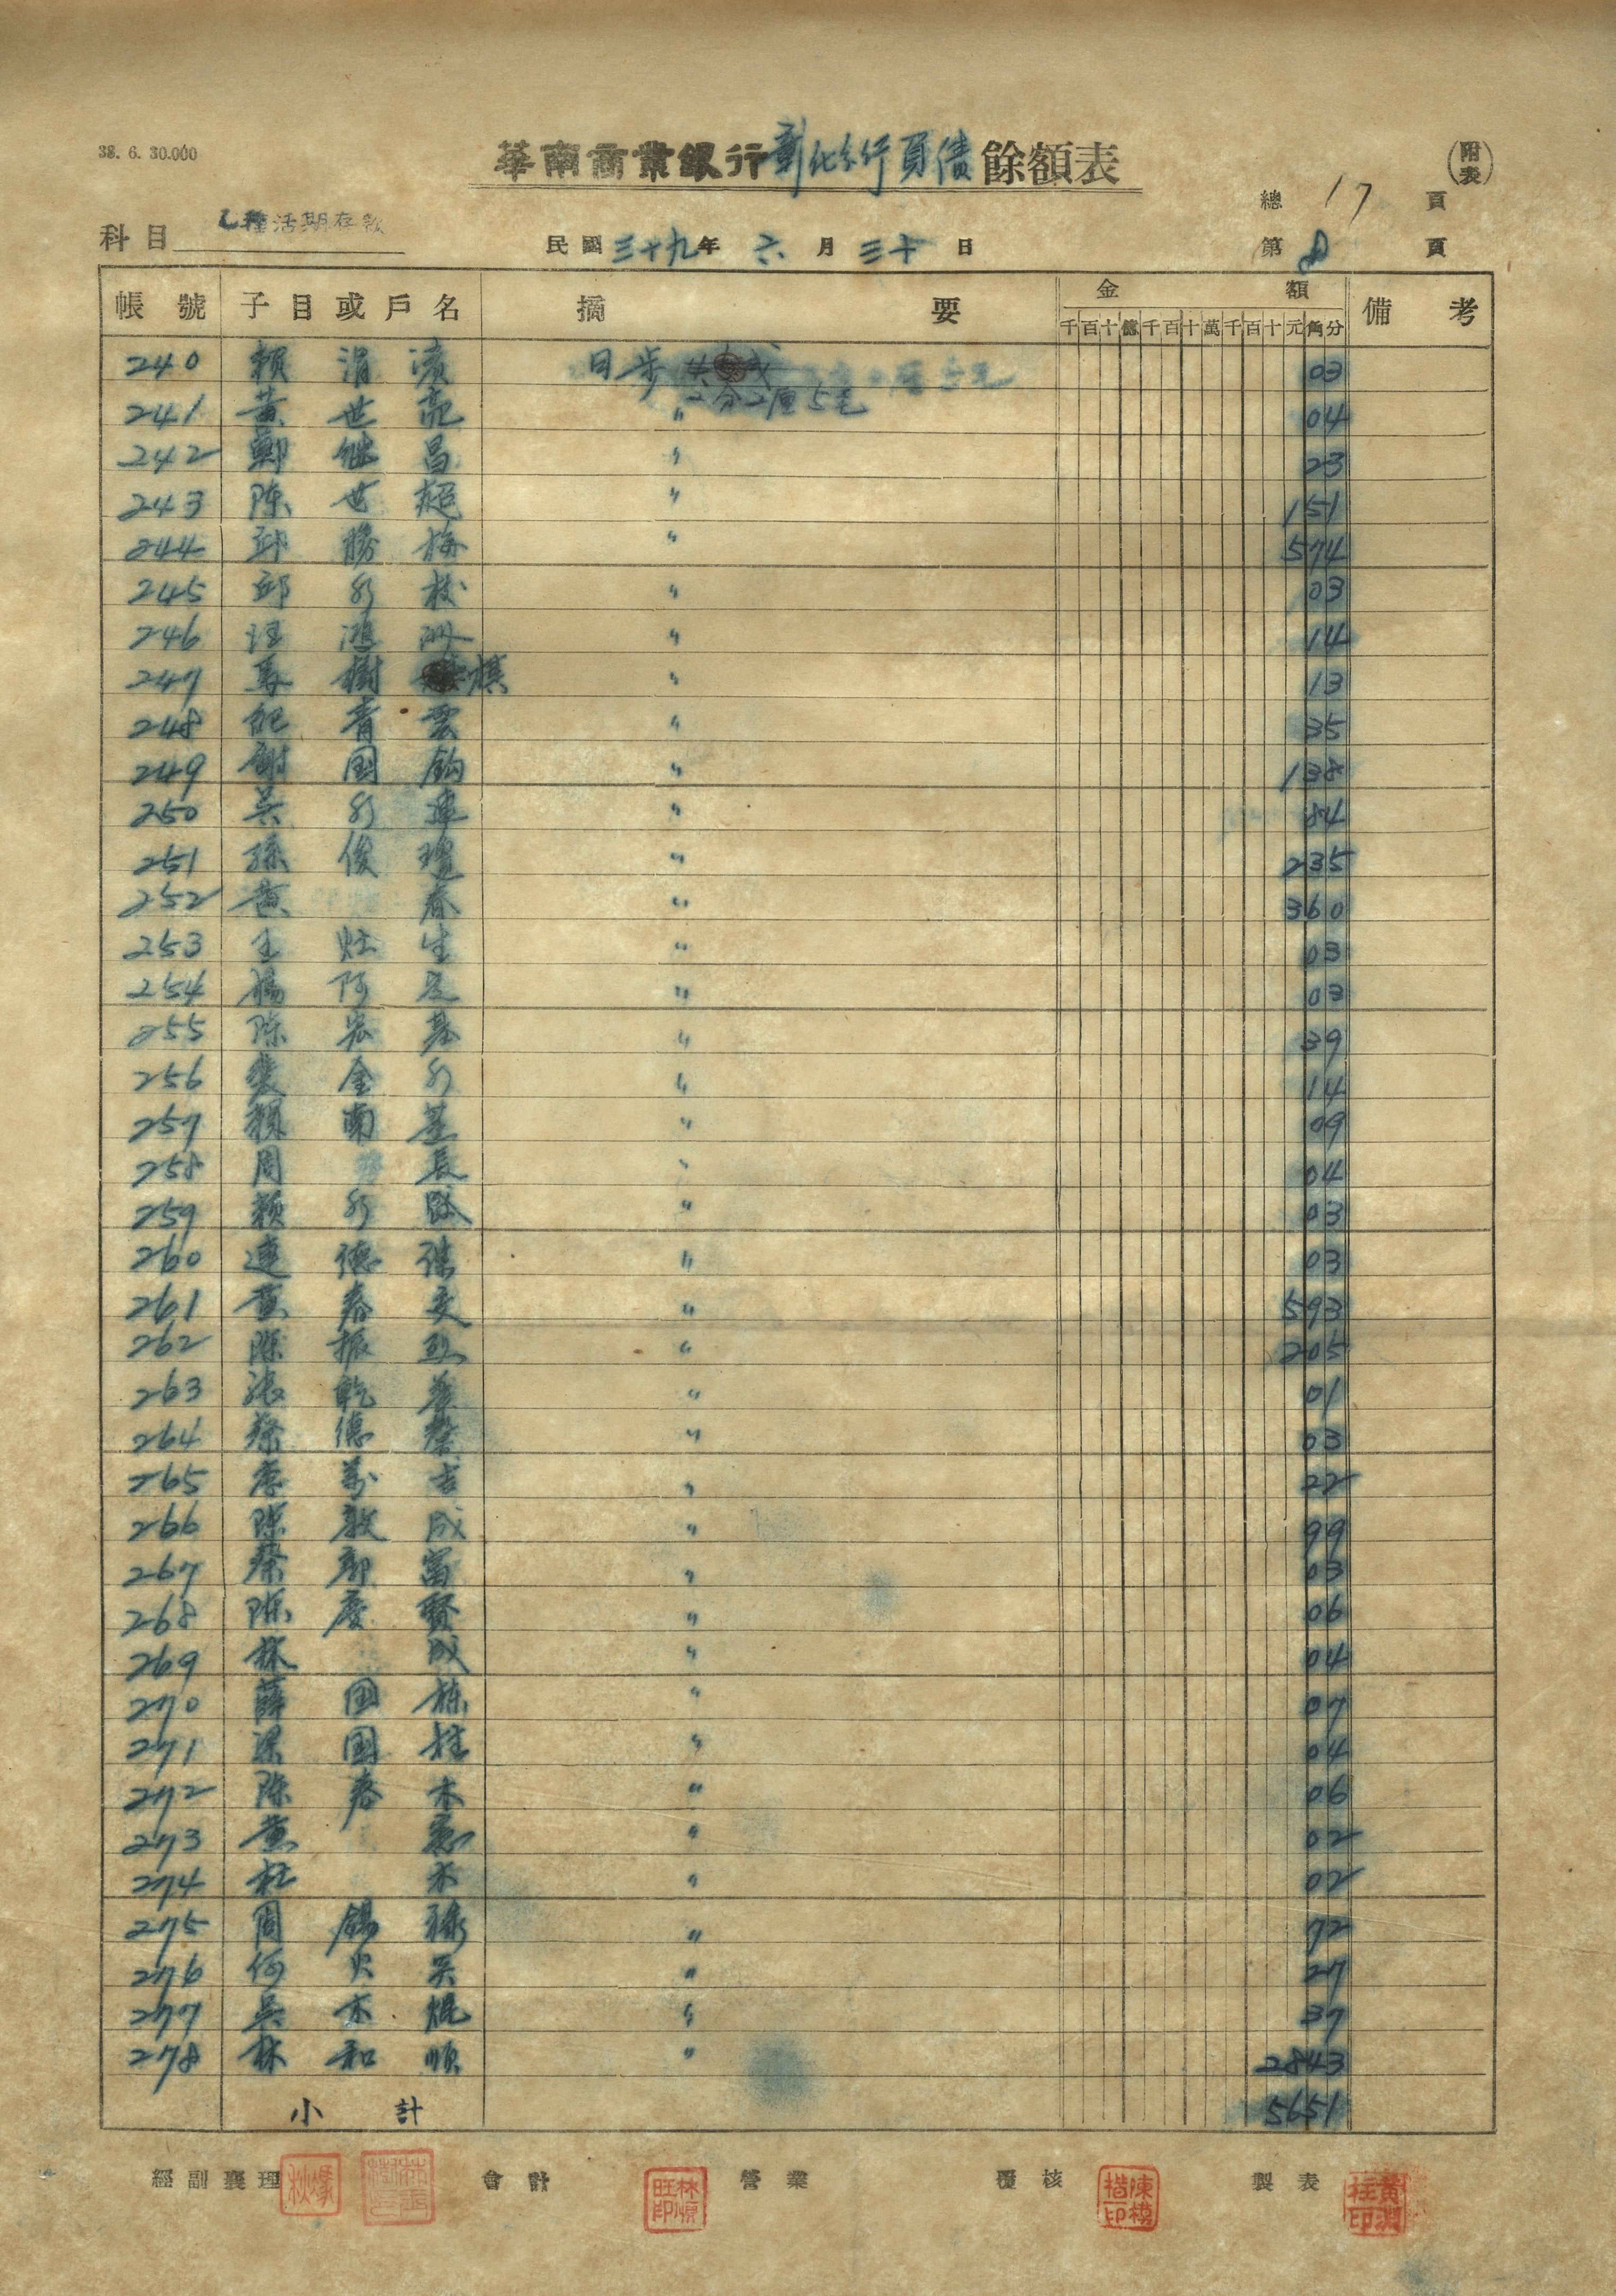 38. 6. 30.000
華南商業銀行彰化分行負債餘額表
(附表)
總 17 頁
科目 乙種活期存款
民國三十九年 六 月 三十 日
第 8 頁
帳號 子目或戶名 摘要 金額 備考
千百十億千百十萬千百十元角分
240 賴 涓 濱 日步 03
2分2厘5毛
241 黃 世 亮 〃 04
242 鄭 継 昌 〃 23
243 陈 世 超 〃 151
244 邱 勝 梅 〃 574
245 邱 水 枝 〃 03
246 汪 鴻 洲 〃 14
247 馬 樹 棋 〃 13
248 紀 青 雲 〃 35
249 謝 国 鈎 〃 138
250 吴 水 連 〃 84
251 孫 俊 璮 〃 235
252 黄 春 〃 360
253 王 灶 生 〃 03
254 楊 阿 足 〃 03
255 陈 宏 基 〃 39
256 裴 金 水 〃 14
257 賴 南 基 〃 09
258 周 長 〃 04
259 賴 水 〃 03
260 連 德 〃 03
261 黄 春 〃 593
262 陈 振 烈 〃 205
263 張 乾 〃 01
264 蔡 德 馨 〃 03
265 李 萬 吉 〃 22
266 陈 敦 成 〃 99
267 蔡 郭 富 〃 03
268 陈 慶 賢 〃 06
269 林 成 〃 04
270 薛 国 栋 〃 07
271 梁 國 桂 〃 04
272 陈 春 木 〃 06
273 黄 〃 02
274 杜 木 〃 02
275 周 錫 祿 〃 72
276 何 火 吴 〃 27
277 吳 木 焜 〃 37
278 林 和 順 〃 2843
小計 5651
經副襄理 會計 營業 覆核 製表
林順旺印
陳模楷印